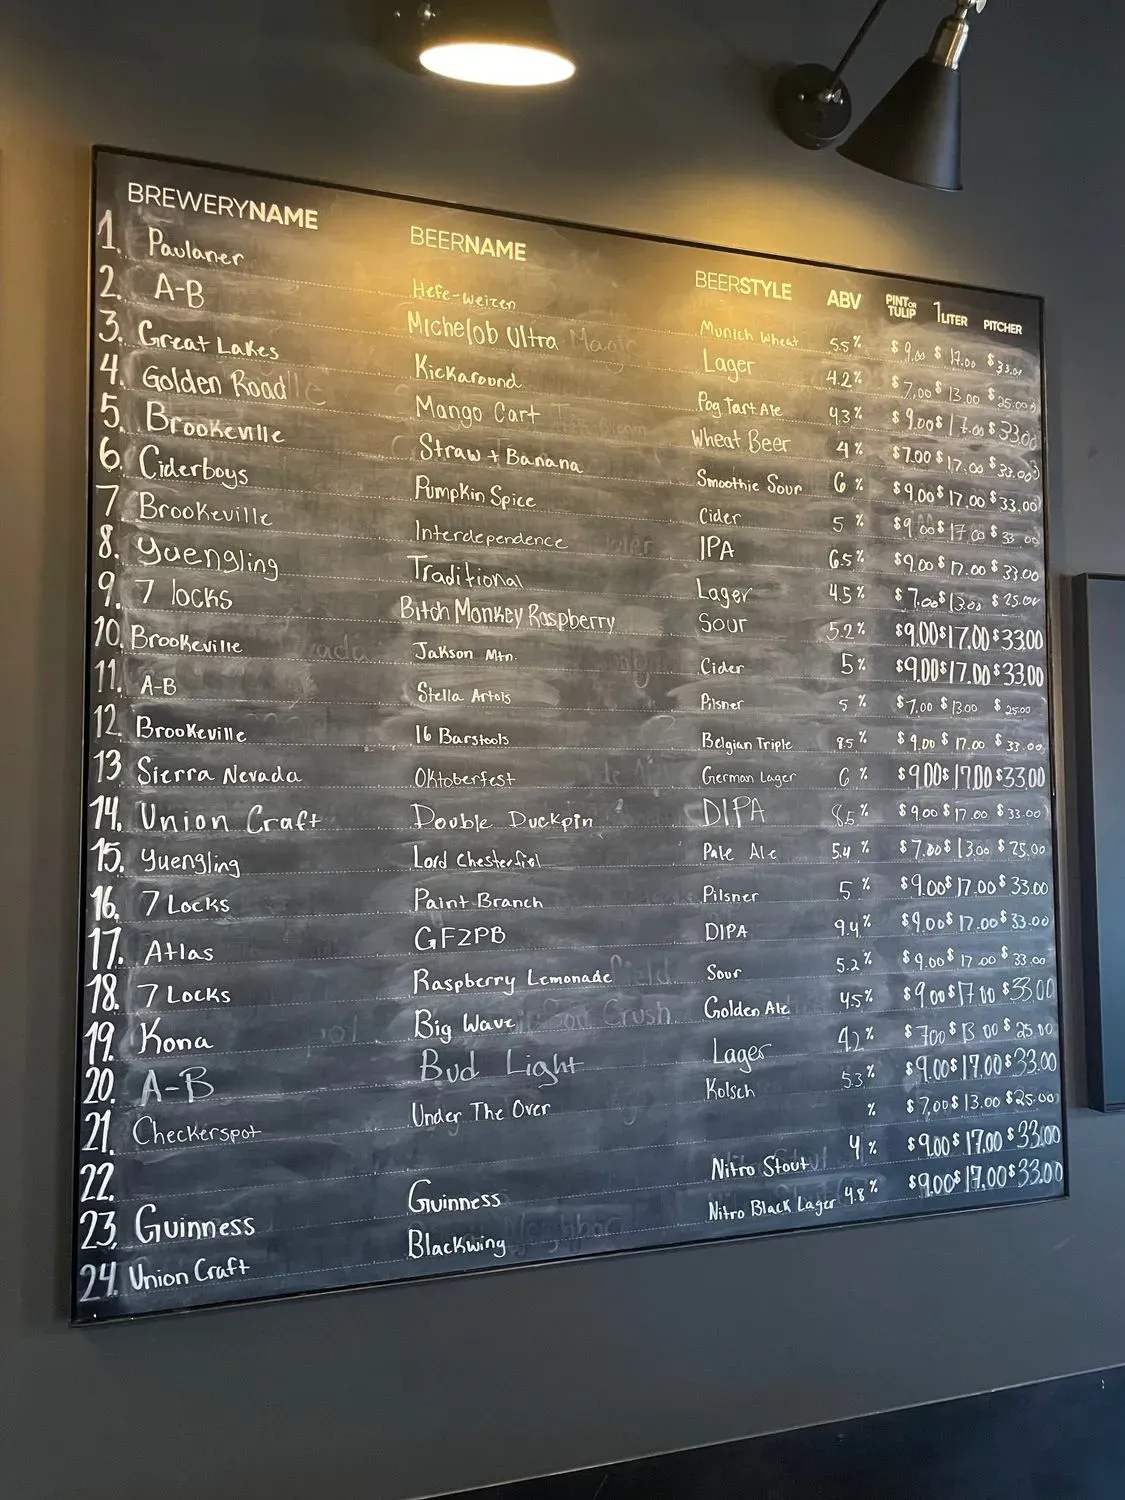 BREWERYNAME BEERNAME BEERSTYLE ABV PINT OR TULIP 1 LITER PITCHER
1. Paulaner Hefe-weizen Munich Wheat 5.5% $9.00 $17.00 $33.00
2. A-B Michelob Ultra Lager 4.2% $7.00 $13.00 $25.00
3. Great Lakes Kickaround Pog Tart Ale 4.3% $9.00 $17.00 $33.00
4. Golden Road Mango Cart Wheat Beer 4% $7.00 $17.00 $33.00
5. Brookeville Straw + Banana Smoothie Sour 6% $9.00 $17.00 $33.00
6. Ciderboys Pumpkin Spice Cider 5% $9.00 $17.00 $33.00
7. Brookeville Interdependence IPA 6.5% $9.00 $17.00 $33.00
8. Yuengling Traditional Lager 4.5% $7.00 $13.00 $25.00
9. 7 locks Bitch Monkey Raspberry Sour 5.2% $9.00 $17.00 $33.00
10. Brookeville Jakson Mtn. Cider 5% $9.00 $17.00 $33.00
11. A-B Stella Artois Pilsner 5% $7.00 $13.00 $25.00
12. Brookeville 16 Barstools Belgian Triple 8.5% $9.00 $17.00 $33.00
13 Sierra Nevada Oktoberfest German Lager 6% $9.00 $17.00 $33.00
14. Union Craft Double Duckpin DIPA 8.5% $9.00 $17.00 $33.00
15. Yuengling Lord Chesterfiel Pale Ale 5.4% $7.00 $13.00 $25.00
16. 7 Locks Paint Branch Pilsner 5% $9.00 $17.00 $33.00
17. Atlas GF2PB DIPA 9.4% $9.00 $17.00 $33.00
18. 7 Locks Raspberry Lemonade Sour 5.2% $9.00 $17.00 $33.00
19. Kona Big Wave Golden Ale 4.5% $9.00 $17.00 $33.00
20. A-B Bud Light Lager 4.2% $7.00 $13.00 $25.00
21. Checkerspot Under The Over Kolsch 5.3% $9.00 $17.00 $33.00
22. % $7.00 $13.00 $25.00
23. Guinness Guinness Nitro Stout 4% $9.00 $17.00 $33.00
24. Union Craft Blackwing Nitro Black Lager 4.8% $9.00 $17.00 $33.00